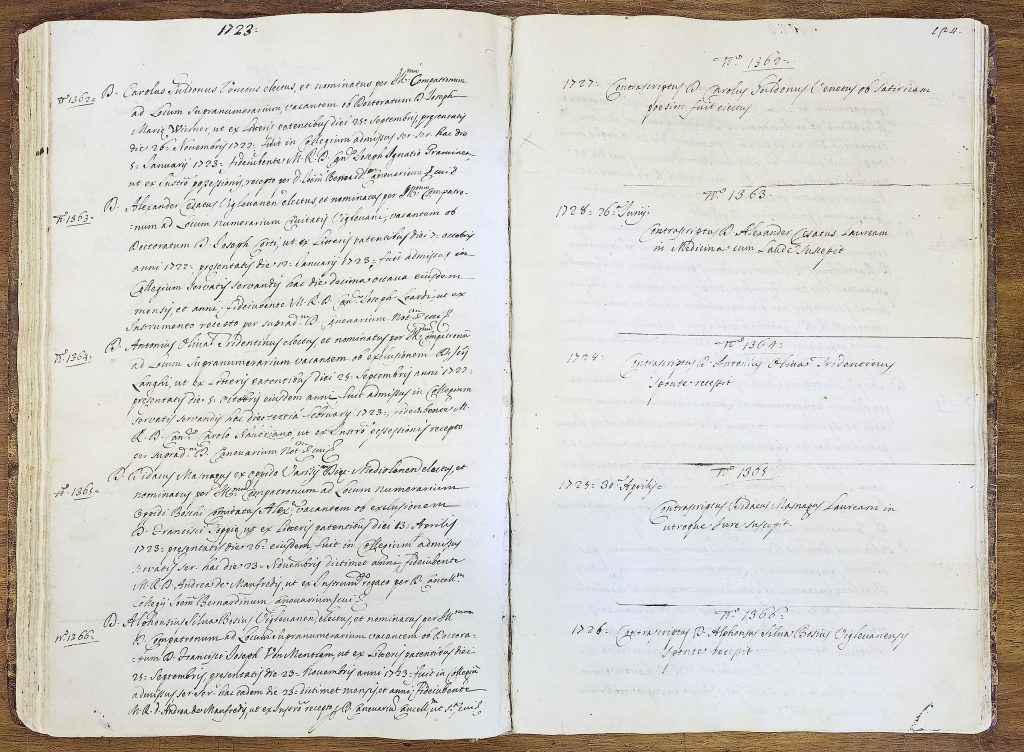 1723.
N.º 1362= D. Carolus Suddenus Venetus electus, et nominatus per Ill.mum Compatronum
ad Locum Supranumerarium, vacantem ob Doctoratum D. Joseph
Marie Wierner, ut ex Literis patentibus diei 25. Septembris, presentatis
die 26. Novembris 1722. fuit in Collegium admissus ser. ser. hac die
5. Januarij 1723. fideiubente M. R. D. Can.co Joseph Ignatio
ut ex Instro possessionis, recepto per D. Joan. Bernard. Canevarium
N.º 1363= D. Alexander Cesatus Viglevanen electus et nominatus per Ill.mum Compatro-
-num ad Locum numerarium Civitatis Viglevani, vacantem ob
Doctoratum D. Joseph Corti, ut ex Litteris patentibus diei 7. octobris
anni 1722. presentatis die 12. Januarij 1723. fuit admissus in
Collegium servatis servandis hac die decima octava eiusdem
mensis et anni. fideiubente M. R. D. Can.co Joseph Leardi, ut ex
Instrumento recepto per suprad.m D. Canevarium Not.m
N.º 1364= D. Antonius Oliva Tridentinus electus et nominatus per Ill.mum Compatronum
ad Locum Supranumerarium vacantem ob exclusionem D. Josephi
ut ex Literis patentibus diei 25. Septembris anni 1722.
presentatis die 5. octobris eiusdem anni fuit admissus in Collegium
servatis servandis hac die tertia februarij 1723. fideiubente M.
R. D. Can.co Carolo ut ex Instro possessionis recepto
per suprad.m D. Canevarium Not.m
N.º 1365= D. Didacus Masnagus ex oppido Varisij Duc. Mediolanen electus, et
nominatus per Ill.mum Compatronum ad Locum numerarium
Oppidi Boschi Comitatus Alex.æ vacantem ob exclusionem
D. Francisci ut ex Litteris patentibus diei 13. Aprilis
1723. presentatis die 26. eiusdem, fuit in Collegium admissus
servatis ser. hac die 23. Novembris dictimet anni, fideiubente
M. R. D. Andrea de Manfredis, ut ex Instrum.to rogato per D. Cancell.m
Collegij Joan Bernardinum Canevarium
N.º 1366= D. Alphonsus Silva Bosius Viglevanen, electus, et nominatus per Ill.mum
D. Compatronum ad Locum supranumerarium vacantem ob Doctora-
-tum D. Francisci Joseph Von Mentlen, ut ex Literis patentibus diei
25. Septembris, presentatis die 23. Novembris anni 1723. fuit in Collegium
admissus ser. ser. hac eadem die 23. dictimet mensis et anni, fideiubente
M. R. D. Andrea de Manfredis, ut ex Instro recepto p. D. Canevariu Cancell. ut s.a
124.
N.º 1362=
1727= Contrascriptus D. Carolus Suddenus Venetus ob Satiricam
poesim fuit eiectus
N.º 1363.
1728= 26. Junij.
Contrascriptus D. Alexander Cesatus Lauream
in Medicina cum Laude suscepit
N.º 1364=
1724= Contrascriptus D. Antonius Oliva Tridentinus
sponte recessit
N.º 1365
1725= 30. Aprilis=
Contrascriptus Didacus Masnagus Lauream in
utroque Jure suscepit.
N.º 1366=
1726= Contrascriptus D. Alphonsus Silva Bosius Viglevanensis
sponte recessit